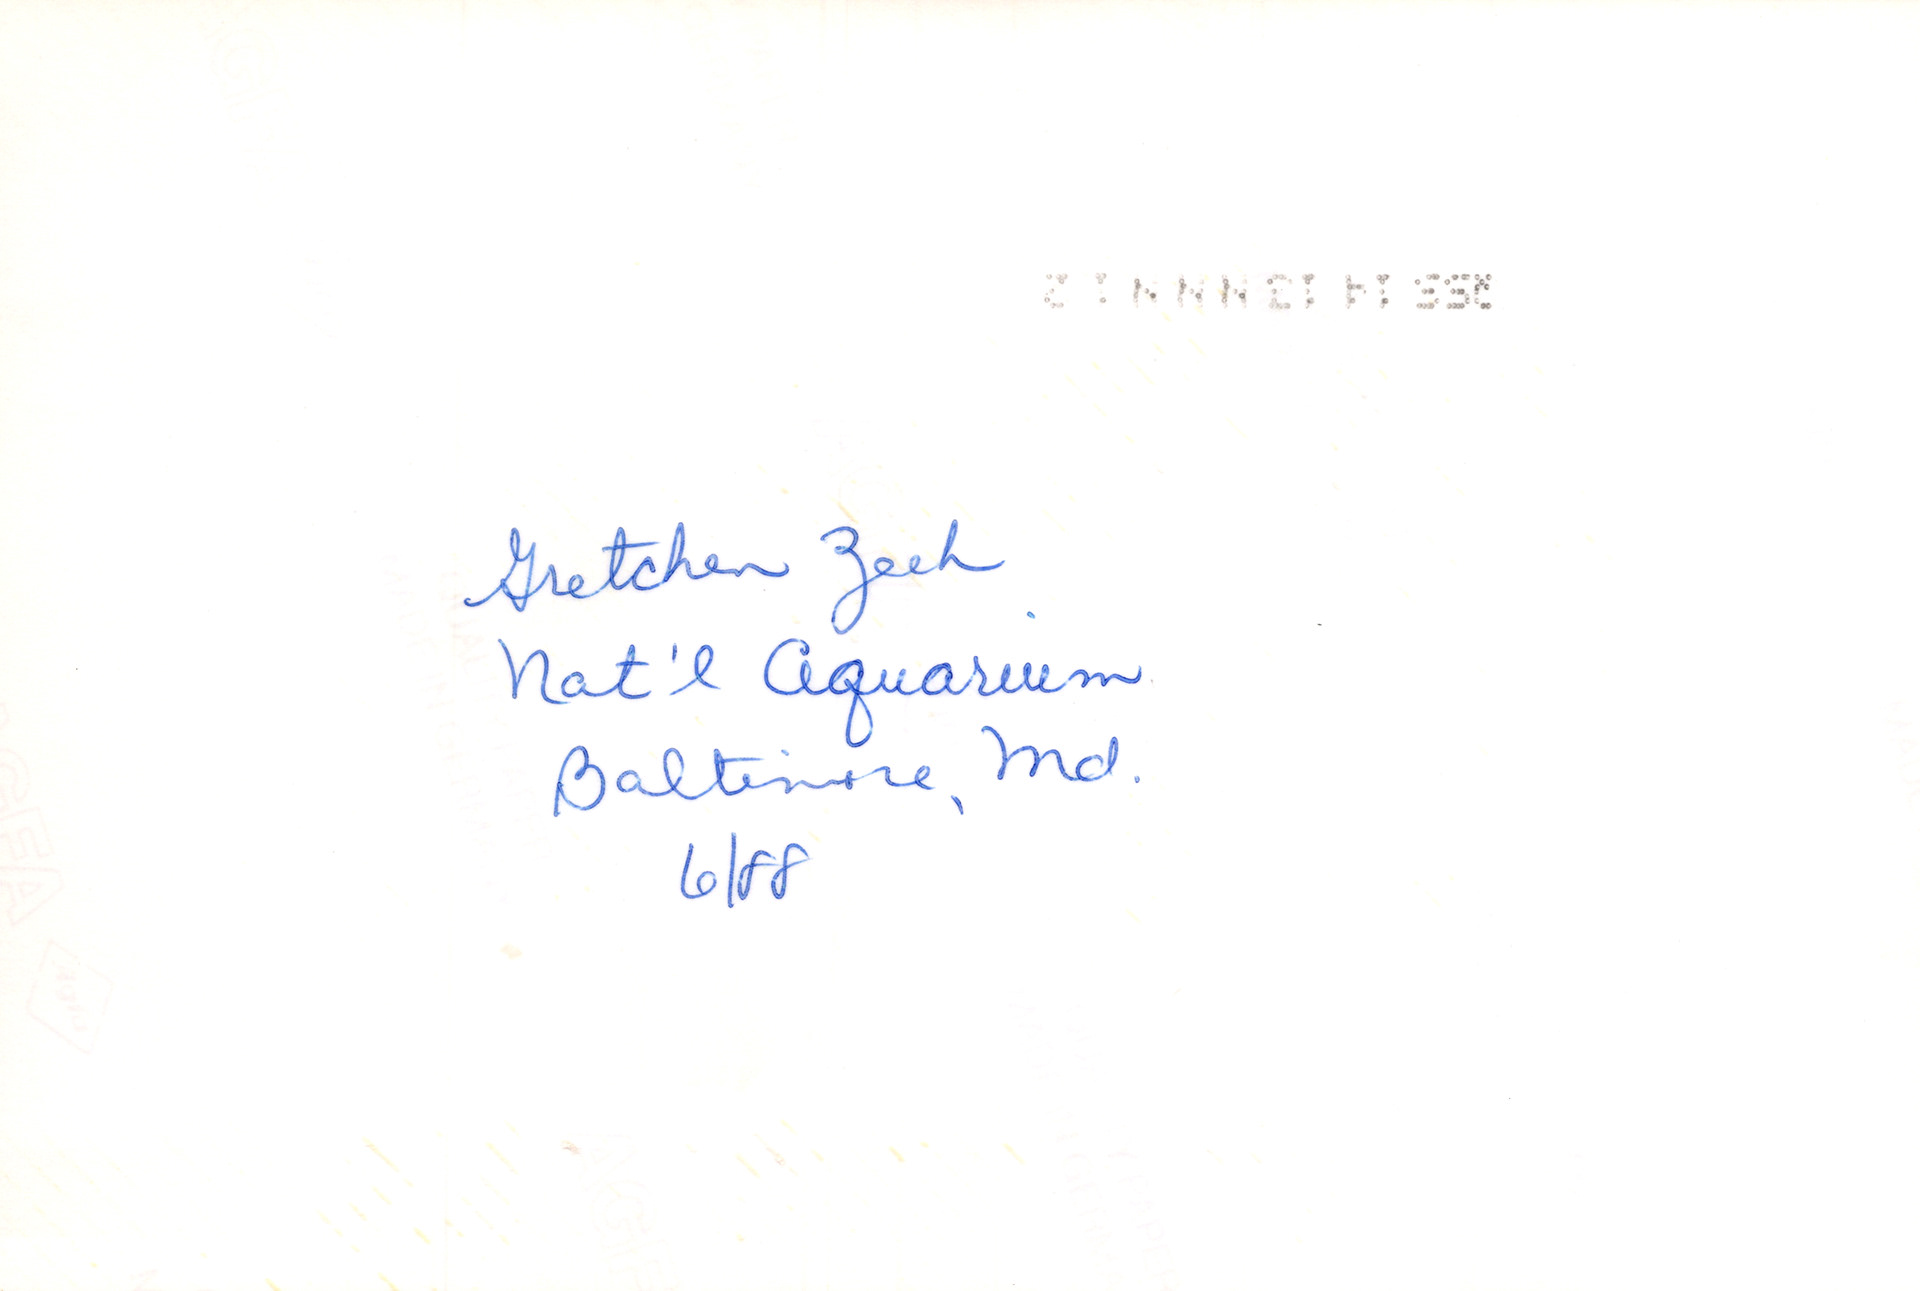 Gretchen Zech
Nat'l Aquarium
Baltimore, Md.
6/88